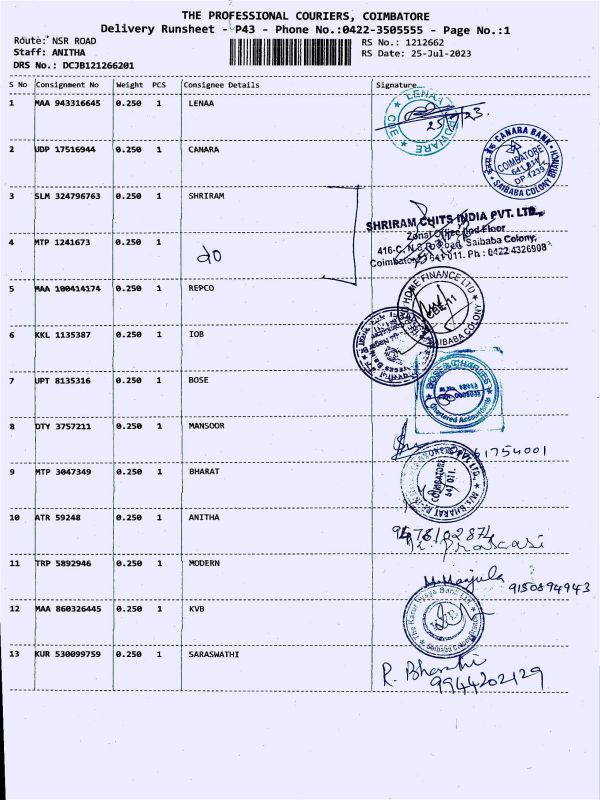 THE PROFESSIONAL COURIERS, COIMBATORE
Delivery Runsheet - P43 - Phone No.:0422-3505555 - Page No.:1
Route: NSR ROAD
RS No.: 1212662
Staff: ANITHA
RS Date: 25-Jul-2023
DRS No.: DCJB121266201
S No Consignment No Weight PCS Consignee Details Signature
1 MAA 943316645 0.250 1 LENAA
LENAA
CBE
2 UDP 17516944 0.250 1 CANARA
CANARA BANK
COIMBATORE
641 011
DP 1239
SAIBABA COLONY BRANCH
3 SLM 324796763 0.250 1 SHRIRAM
SHRIRAM CHITS INDIA PVT. LTD.
Zonal Office
Saibaba Colony,
641 011. Ph : 0422 4326908
4 MTP 1241673 0.250 1
do
5 MAA 100414174 0.250 1 REPCO
HOME FINANCE LTD
CBE-11
SAIBABA COLONY
6 KKL 1135387 0.250 1 IOB
7 UPT 8135316 0.250 1 BOSE
Chartered Accountants
8 DTY 3757211 0.250 1 MANSOOR
9 MTP 3047349 0.250 1 BHARAT
COIMBATORE
641 011.
10 ATR 59248 0.250 1 ANITHA
11 TRP 5892946 0.250 1 MODERN
M. Manjula
9150894943
12 MAA 860326445 0.250 1 KVB
The Karur Vysya Bank Ltd
13 KUR 530099759 0.250 1 SARASWATHI
R. Bharathi
9944202129